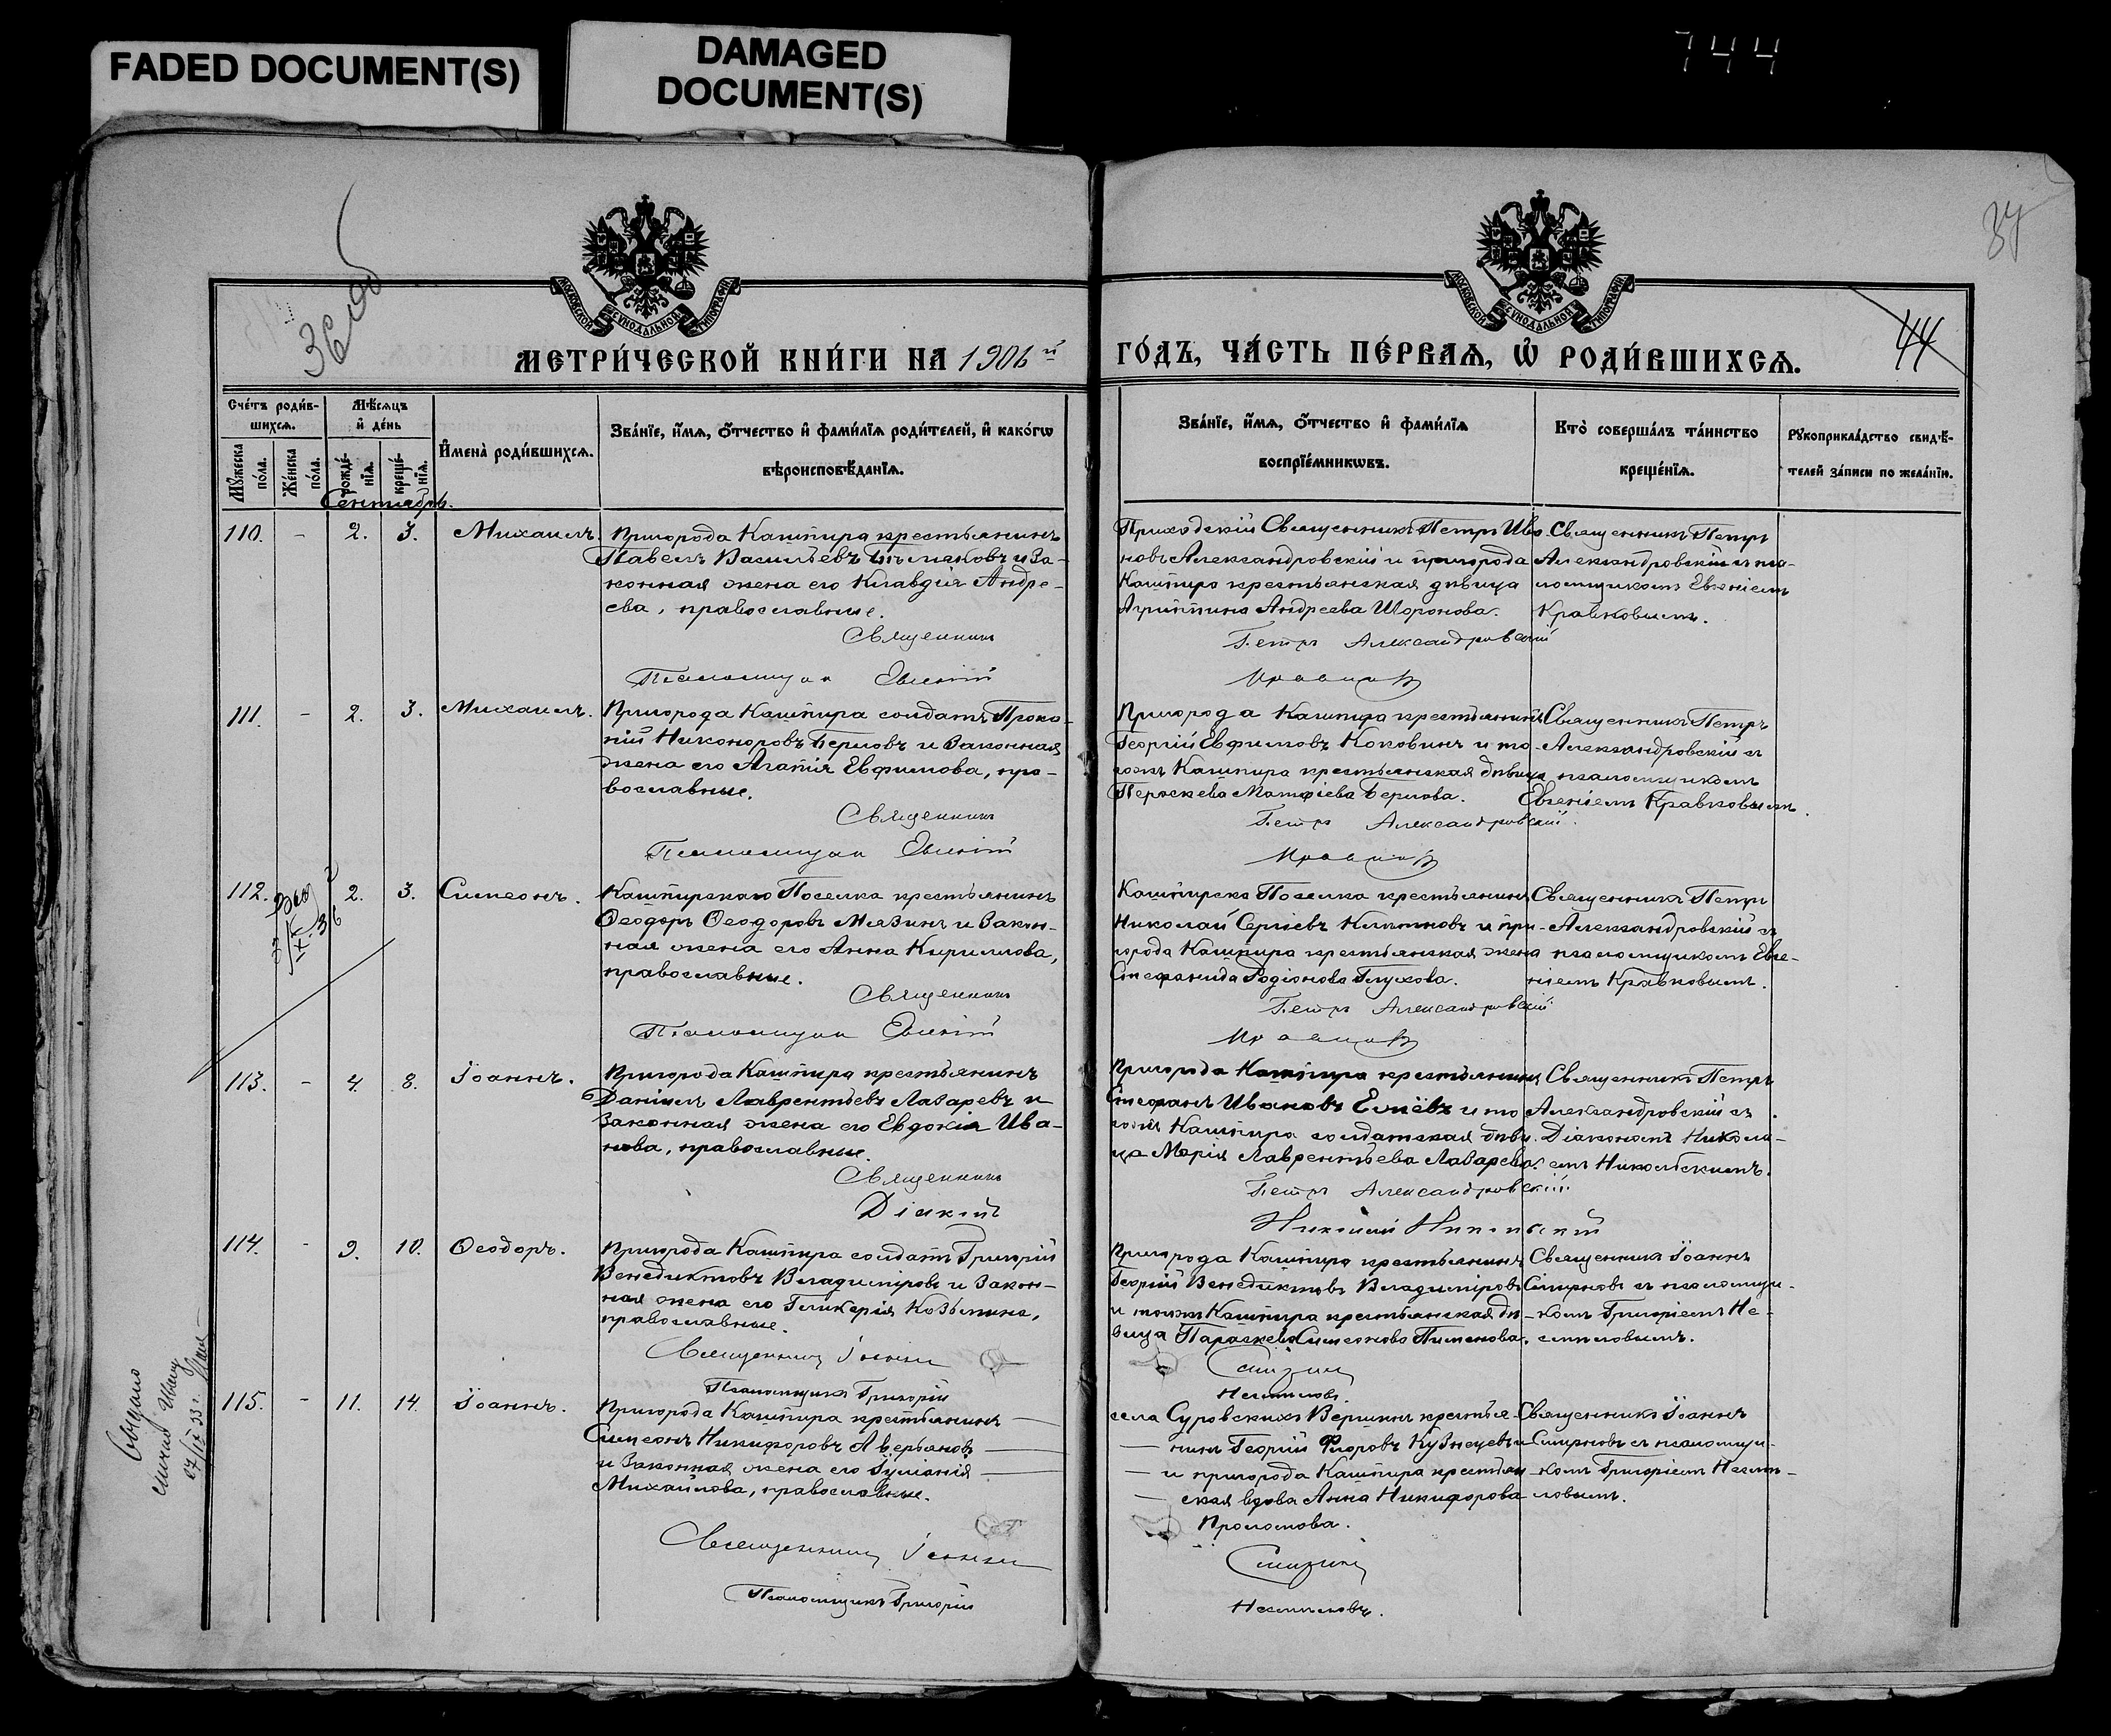 FADED DOCUMENT(S)
DAMAGED
DOCUMENT(S)
744
37
44
МОСКОВСКОЙ СѴНОДАЛЬНОЙ ТИПОГРАФІИ
МОСКОВСКОЙ СѴНОДАЛЬНОЙ ТИПОГРАФІИ
МЕТРИ́ЧЕСКОЙ КНИ́ГИ НА 1906й
ГО́ДЪ, ЧА́СТЬ ПЕ́РВАѦ, Ѡ҆ РОДИ́ВШИХСѦ.
Сче́тъ роди́в-
шихсѧ.
Мѣ́сѧцъ
и҆ де́нь
И҆мена̀ роди́вшихсѧ.
Зва́нїе, и҆́мѧ, ѻ҆́тчество и҆ фами́лїѧ роди́телей, и҆ како́гѡ
вѣроисповѣ́данїѧ.
Мꙋ́жеска
по́ла.
Же́нска
по́ла.
рожде́-
нїѧ.
креще́-
нїѧ.
Зва́нїе, и҆́мѧ, ѻ҆́тчество и҆ фами́лїѧ
воспрїе́мникѡвъ.
Кто̀ соверша́лъ та́инство
креще́нїѧ.
Рꙋкоприкла́дство свидѣ́-
телей за́писи по жела́нїю.
Сентябрь.
110. - 2. 3. Михаилъ.
Пригорода Кашпира крестьянинъ
Павелъ Васильевъ и за-
конная жена его Клавдія Андре-
ева, православные.
Священникъ
Псаломщик Евгеній
Приходскій Священникъ Петръ Ива-
новъ Александровскій и пригорода
Кашпира крестьянская дѣвица
Агриппина Андреева Шоронова.
Петръ Александровскій
Кравковъ
Священникъ Петръ
Александровскій съ пса-
ломщикомъ Евгеніемъ
Кравковымъ.
111. - 2. 3. Михаилъ.
Пригорода Кашпира солдатъ Проко-
пій Никоноровъ Берловъ и законная
жена его Агапія Евфимова, пра-
вославные.
Священникъ
Псаломщик Евгеній
Пригорода Кашпира крестьянинъ
Георгій Евфимовъ Коковинъ и то-
гожъ Кашпира крестьянская дѣвица
Параскева Матфіева Берлова.
Петръ Александровскій
Кравковъ
Священникъ Петръ
Александровскій съ
псаломщикомъ
Евгеніемъ Кравковымъ.
112. 2. 3. Симеонъ.
Кашпирскаго Поселка крестьянинъ
Ѳеодоръ Ѳеодоровъ Мязинъ и закон-
ная жена его Анна Кириллова,
православные.
Священникъ
Псаломщик Евгеній
Кашпирска Поселка крестьянинъ
Николай Сергіевъ и при-
города Кашпира крестьянская жена
Стефанида Родіонова Глухова.
Петръ Александровскій
Кравковъ
Священникъ Петръ
Александровскій съ
псаломщикомъ Евге-
ніемъ Кравковымъ.
113. - 4. 8. Іоаннъ.
Пригорода Кашпира крестьянинъ
Даніилъ Лаврентьевъ Лазаревъ и
законная жена его Евдокія Ива-
нова, православные.
Священникъ
Діаконъ
Пригорода Кашпира крестьянинъ
Стефанъ Ивановъ и то
гожъ Кашпира солдатская дѣви-
ца Марія Лаврентьева Лазарева.
Петръ Александровскій
Николай Никольскій
Священникъ Петръ
Александровскій съ
Діакономъ Никола-
емъ Никольскимъ.
114. - 9. 10. Ѳеодоръ.
Пригорода Кашпира солдатъ Григорій
Венедиктовъ Владиміровъ и закон-
ная жена его Гликерія Козьмина,
православные.
Священникъ Іоаннъ
Псаломщикъ Григорій
Пригорода Кашпира крестьянинъ
Георгій Венедиктовъ Владиміровъ
и тогожъ Кашпира крестьянская дѣ-
вица Параскева Симеонова Пименова.
Смирновъ
Несмѣловъ.
Священникъ Іоаннъ
Смирновъ съ псаломщи-
комъ Григоріемъ Не-
смѣловымъ.
115. - 11. 14. Іоаннъ.
Пригорода Кашпира крестьянинъ
Симеонъ Никифоровъ Аверьяновъ
и законная жена его Іуліанія
Михайлова, православные.
Священникъ Іоаннъ
Псаломщикъ Григорій
села Суровскихъ Вершинъ крестья-
нинъ Георгій Флоровъ Кузнецовъ
и пригорода Кашпира крестьян-
ская вдова Анна Никифорова
Проломова.
Смирновъ
Несмѣловъ.
Священникъ Іоаннъ
Смирновъ съ псаломщи-
комъ Григоріемъ Несмѣ-
ловымъ.